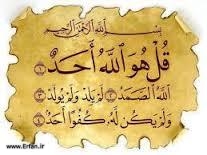 بِسْمِ اللَّهِ الرَّحْمَٰنِ الرَّحِيمِ
قُلْ هُوَ اللَّهُ أَحَدٌ ۝١
اللَّهُ الصَّمَدُ ۝٢ لَمْ يَلِدْ وَلَمْ يُولَدْ ۝٣
وَلَمْ يَكُن لَّهُ كُفُوًا أَحَدٌ ۝٤
www.Erfan.ir